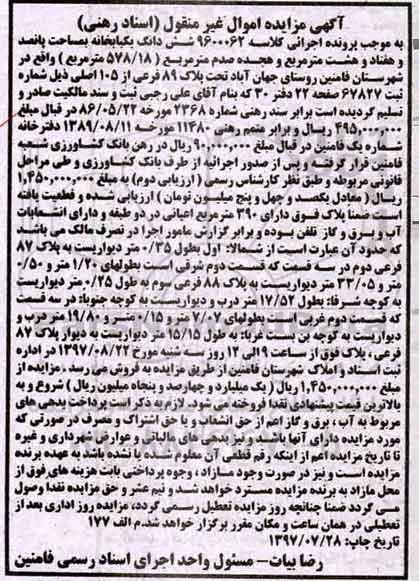 آگهی مزایده اموال غیر منقول (اسناد رهنی)
به موجب پرونده اجرائی کلاسه ۹۶۰۰۰۶۲ شش دانگ یکبابخانه بمساحت پانصد
و هفتاد و هشت مترمربع و هجده صدم مترمربع (۵۷۸/۱۸ مترمربع) واقع در
شهرستان فامنین روستای جهان آباد تحت پلاک ۸۹ فرعی از ۱۰۵ اصلی ذیل شماره
ثبت ۶۷۸۲۷ صفحه ۲۲ دفتر ۳۰ که بنام آقای علی رجبی ثبت و سند مالکیت صادر و
تسلیم گردیده است برابر سند رهنی شماره ۲۳۶۸ مورخه ۸۶/۰۵/۲۲ در قبال مبلغ
۴۹۵,۰۰۰,۰۰۰ ریال و برابر متمم رهنی ۱۱۴۸۰ مورخه ۱۳۸۹/۰۸/۱۱ دفترخانه
شماره یک فامنین در قبال مبلغ ۹۰,۰۰۰,۰۰۰ ریال در رهن بانک کشاورزی شعبه
فامنین قرار گرفته و پس از صدور اجرائیه از طرف بانک کشاورزی و طی مراحل
قانونی مربوطه و طبق نظر کارشناس رسمی (ارزیابی دوم) به مبلغ ۱,۴۵۰,۰۰۰,۰۰۰
ریال (معادل یکصد و چهل و پنج میلیون تومان) ارزیابی شده و قطعیت یافته
است ضمنا پلاک فوق دارای ۳۹۰ مترمربع اعیانی در دو طبقه و دارای انشعابات
آب و برق و گاز تلفن بوده و برابر گزارش مامور اجرا در تصرف مالک می باشد
که حدود آن عبارت است از شمالا: اول بطول ۰/۳۵ متر دیواریست به پلاک ۸۷
فرعی دوم در سه قسمت که قسمت دوم شرقی است بطولهای ۱/۲۰ متر و ۰/۵۰
متر و ۳۳/۰۵ متر دیواریست به پلاک ۸۸ فرعی سوم به طول ۰/۲۵ متر دیواریست
به کوچه شرقا: بطول ۱۷/۵۲ متر درب و دیواریست به کوچه جنوبا: در سه قسمت
که قسمت دوم غربی است بطولهای ۷/۰۷ متر و ۰/۱۵ متر و ۱۹/۸۰ متر درب و
دیواریست به کوچه بن بست غربا: به طول ۱۵/۱۵ متر دیواریست به دیوار پلاک ۸۷
فرعی ، پلاک فوق از ساعت ۹ الی ۱۲ روز سه شنبه مورخ ۱۳۹۷/۰۸/۲۲ در اداره
ثبت اسناد و املاک شهرستان فامنین از طریق مزایده به فروش می رسد . مزایده از
مبلغ ۱,۴۵۰,۰۰۰,۰۰۰ ریال (یک میلیارد و چهارصد و پنجاه میلیون ریال) شروع و به
بالاترین قیمت پیشنهادی نقدا فروخته می شود. لازم به ذکر است پرداخت بدهی های
مربوط به آب ، برق و گاز اعم از حق انشعاب و یا حق اشتراک و مصرف در صورتی که
مورد مزایده دارای آنها باشد و نیز بدهی های مالیاتی و عوارض شهرداری و غیره
تا تاریخ مزایده اعم از اینکه رقم قطعی آن معلوم شده یا نشده باشد به عهده برنده
مزایده است و نیز در صورت وجود مازاد ، وجوه پرداختی بابت هزینه های فوق از
محل مازاد به برنده مزایده مسترد خواهد شد و نیم عشر و حق مزایده نقدا وصول
می گردد ضمنا چنانچه روز مزایده تعطیل رسمی گردد، مزایده روز اداری بعد از
تعطیلی در همان ساعت و مکان مقرر برگزار خواهد شد.م الف ۱۷۷
تاریخ چاپ: ۱۳۹۷/۰۷/۲۸
رضا بیات – مسئول واحد اجرای اسناد رسمی فامنین